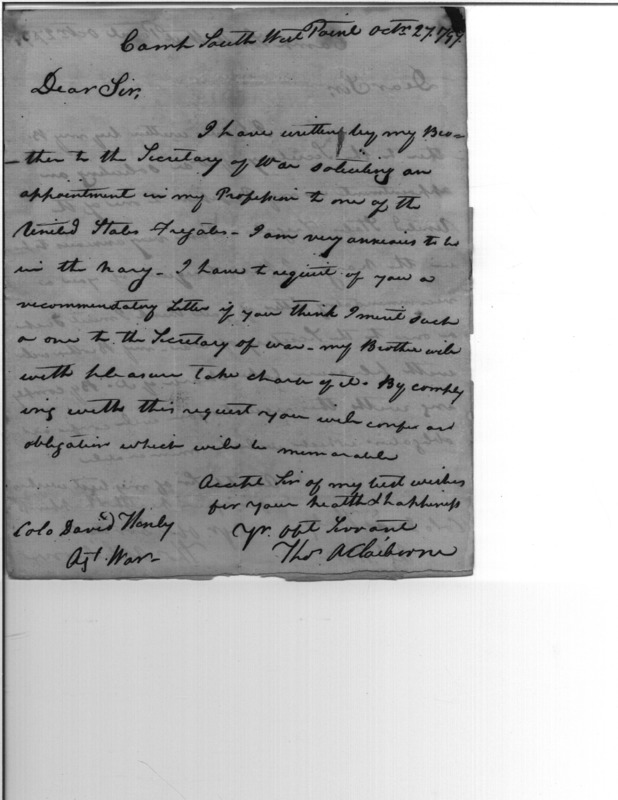 Camp South West Point Octr. 27. 1797
Dear Sir,
I have written by my Bro=
=ther to the Secretary of War soliciting an
appointment in my Profession to one of the
United States Frigates - I am very anxious to be
in the Navy - I have to request of you a
recommendatory Letter if you think I merit such
a one to the Secretary of War - my Brother will
with pleasure take charge of it. By comply
ing with this request you will confer an
obligation which will be memorable
Accept Sir of my best wishes
for your health & happiness
Yr. obt Servant
Thos. A Claiborne
Colo David Henly
Agt. War